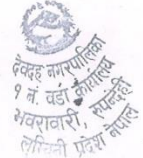 देवदह नगरपालिका
१ नं. वडा कार्यालय
भवरावारी, रुपन्देही
लुम्बिनी प्रदेश नेपाल